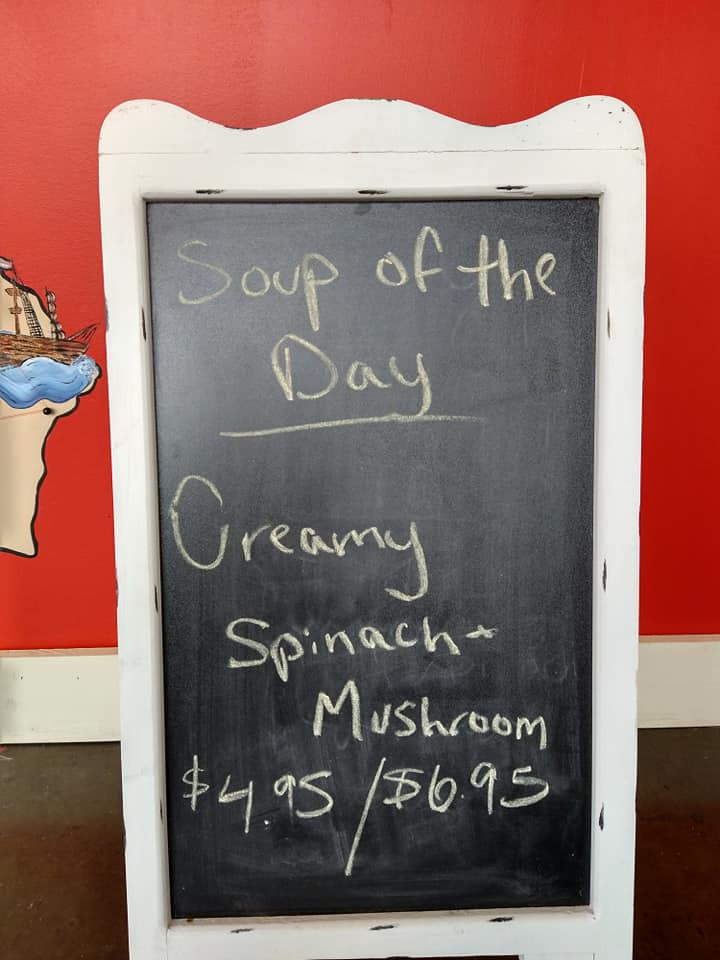 Soup of the
Day
Creamy
Spinach +
Mushroom
$4.95 / $6.95